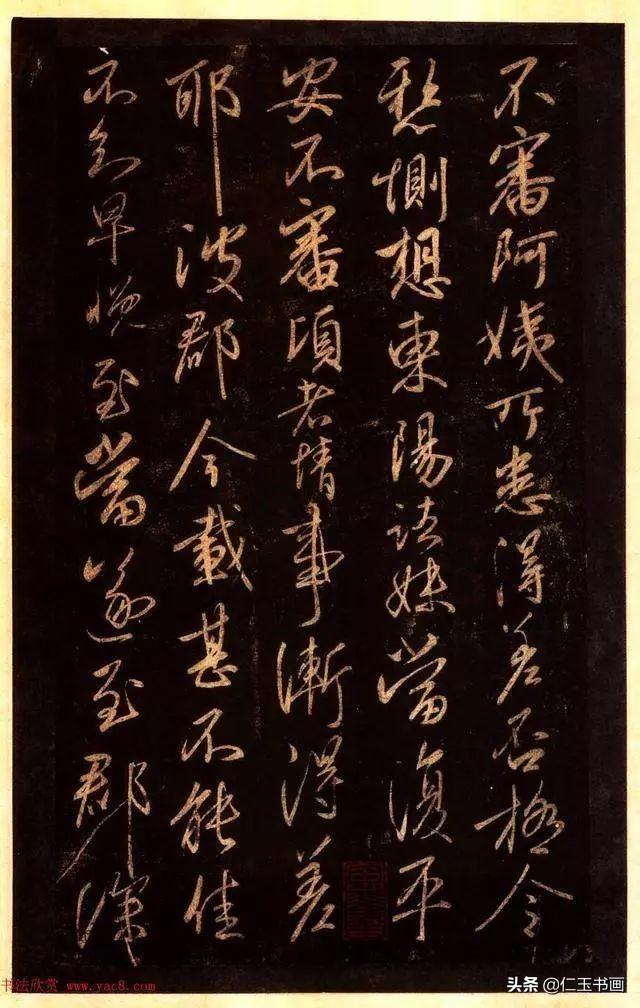 不審阿姨所患得差否極令
懸惻想東陽諸妹當復平
安不審頃者情事漸得差
耶彼郡今載甚不能佳
不知早晚至當遂至郡深
书法欣赏 www.yac8.com
头条 @仁玉书画